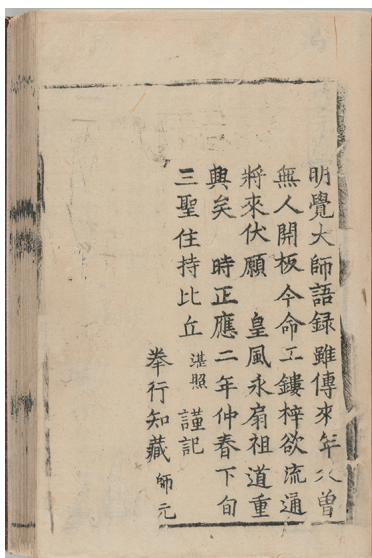 明覺大師語録雖傳來年久曽
無人開板今命工鏤梓欲流通
將來伏願 皇風永扇祖道重
興矣 時正應二年仲春下旬
三聖住持比丘 湛照 謹記
奉行知藏 師元